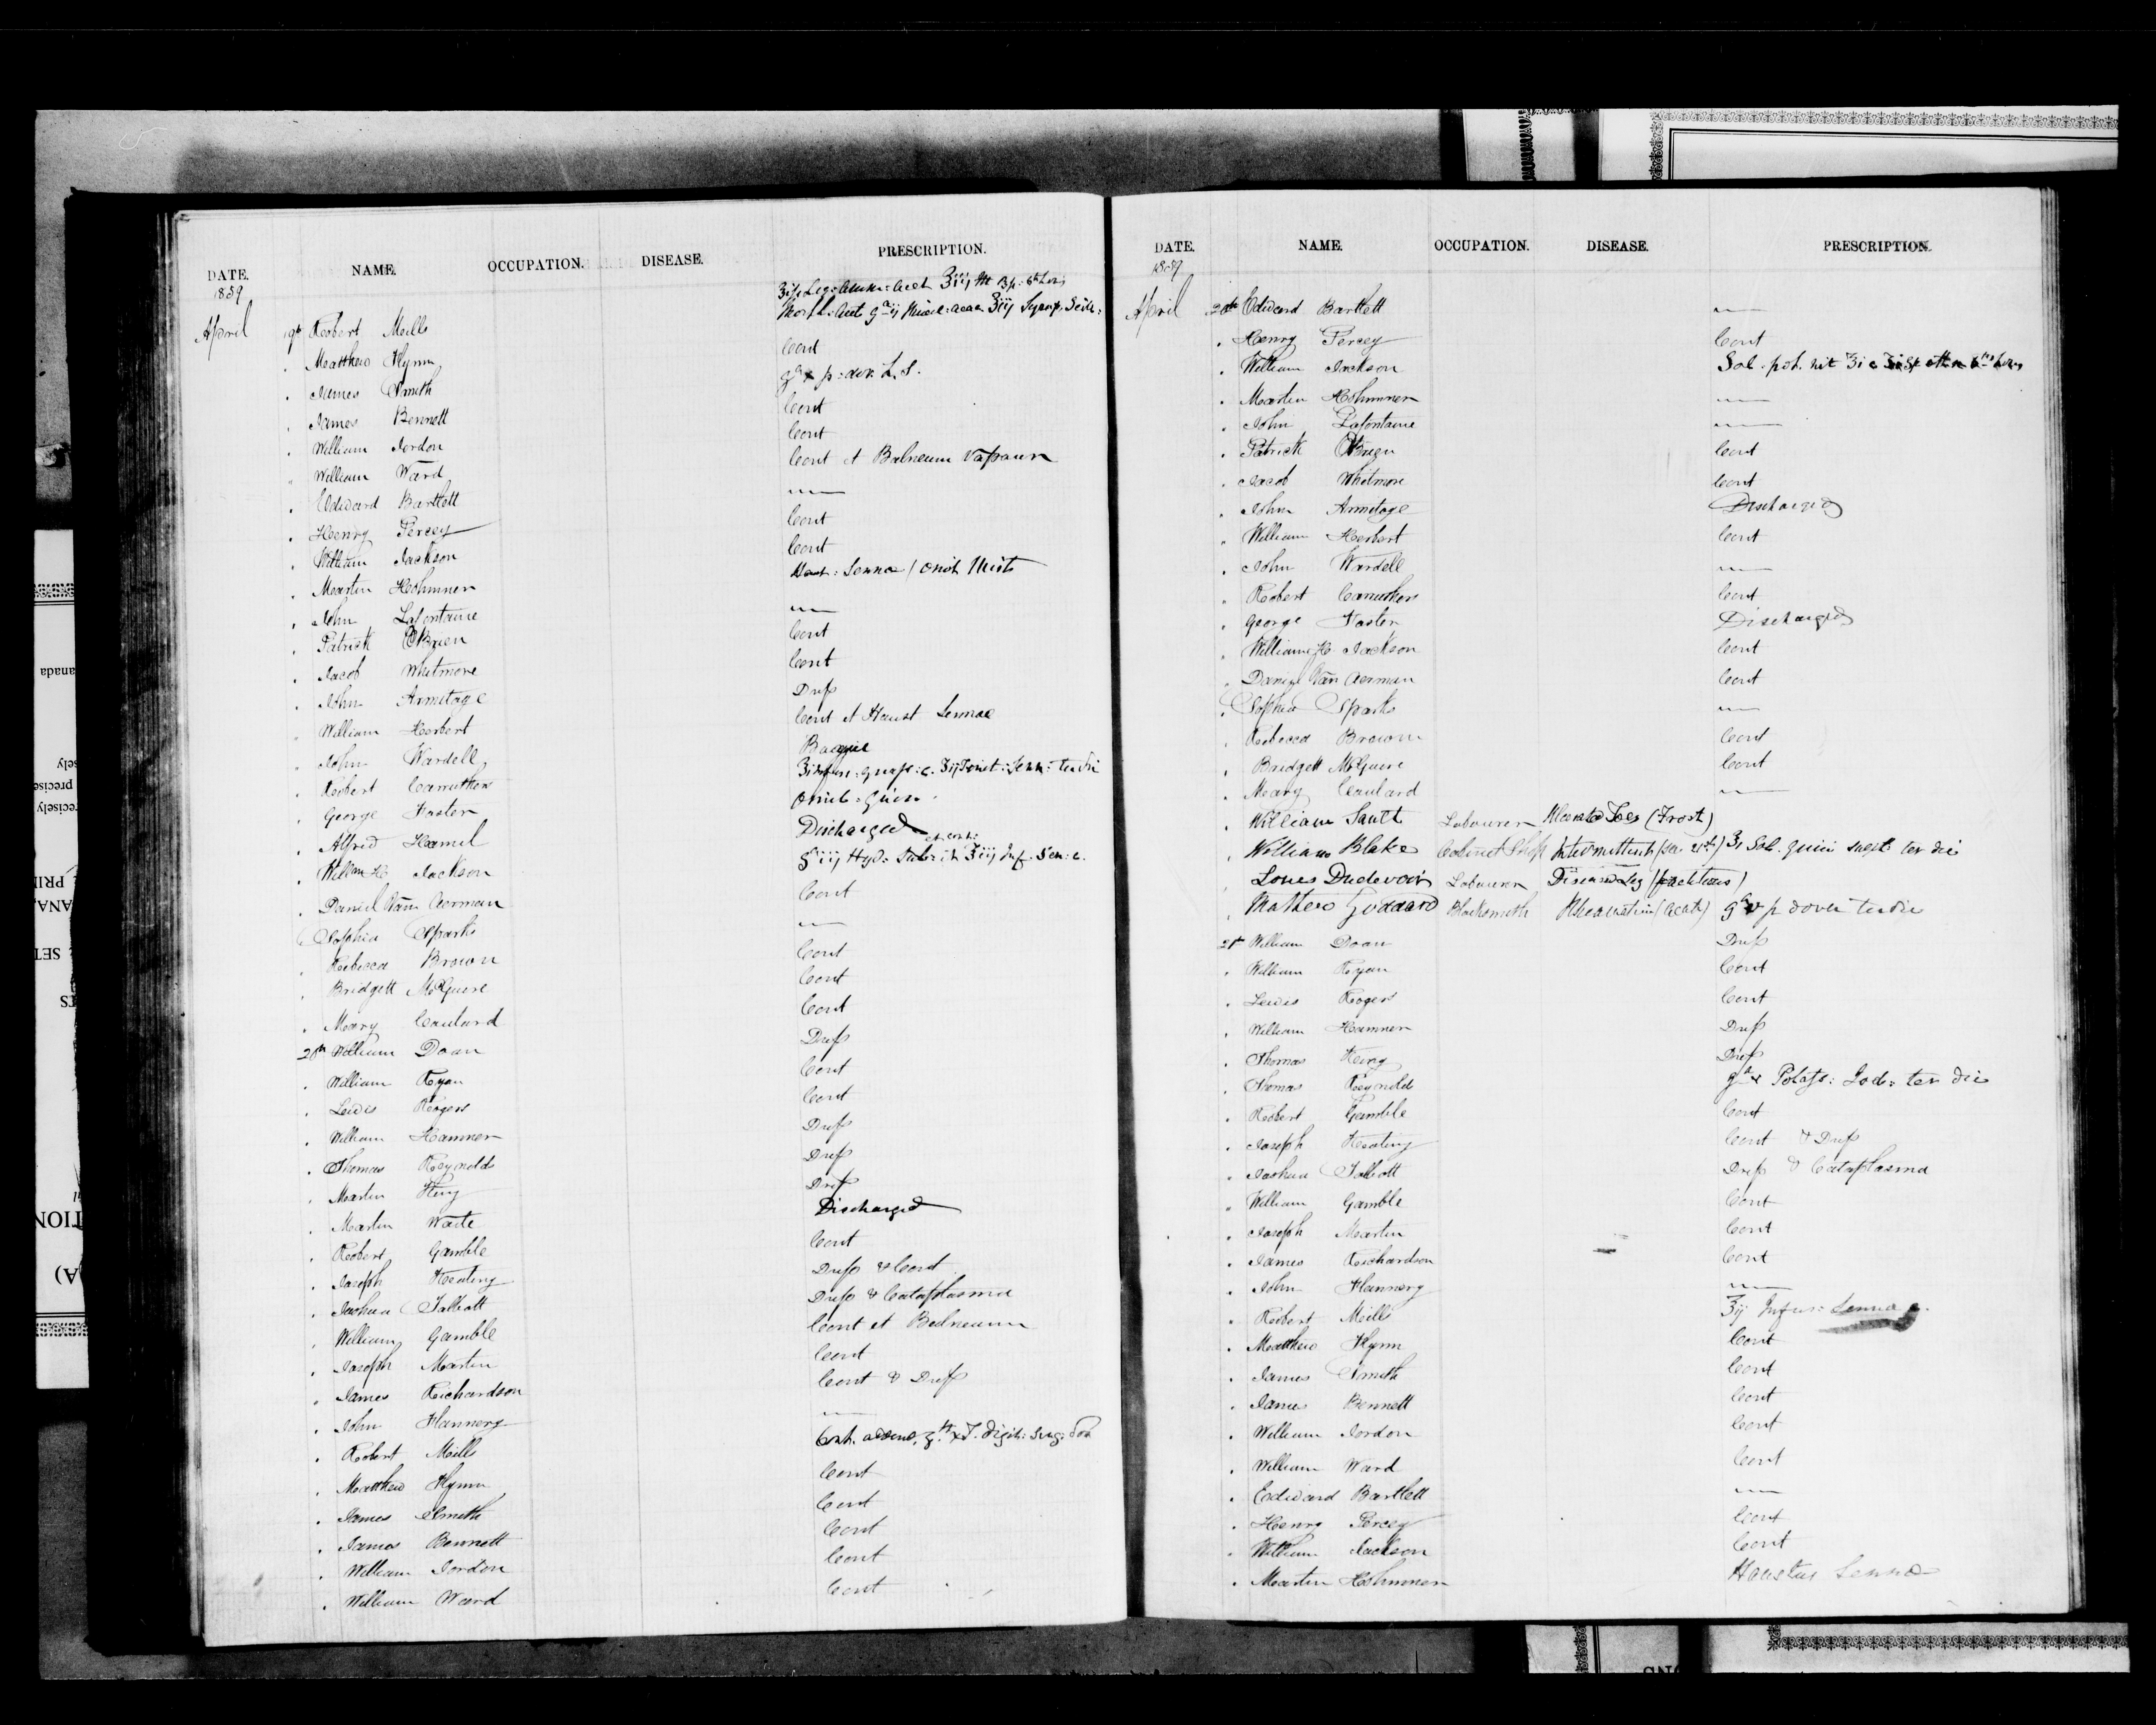 DATE. NAME. OCCUPATION. DISEASE. PRESCRIPTION.
1859
April 19th Robert Mills
" Matthew Flynn Cont
" James Smith
" James Bennett Cont
" William Jordon Cont
" William Ward Cont et Balneum Vaporum
" Edward Bartlett —
" Henry Percey Cont
" William Jackson Cont
" Martin Hohmmen Haust: Sennae / omit Mist
" John Lafontaine —
" Patrick O'Brien Cont
" Jacob Whitmore Cont
" John Armitage Dress
" William Herbert Cont et Haust Sennae
" John Wardell
" Robert Carruthers
" George Foster
" Alfred Hamel Discharged
" William H Jackson
" Daniel Van Aerman Cont
" Sophia Sparks —
" Rebecca Brown Cont
" Bridgett McGuire Cont
" Mary Coulard Cont
20th William Doan Dress
" William Ryan Cont
" Lewis Rogers Cont
" William Hamner Dress
" Thomas Reynolds Dress
" Martin Hery Dress
" Martin Waite Discharged
" Robert Gamble Cont
" Joseph Keating Dress & Cont
" Joshua Talbott Dress & Cataplasma
" William Gamble Cont et Balneum
" Joseph Martin Cont
" James Richardson Cont & Dress
" John Flannery —
" Robert Mills
" Matthew Flynn Cont
" James Smith Cont
" James Bennett Cont
" William Jordon Cont
" William Ward Cont
DATE. NAME. OCCUPATION. DISEASE. PRESCRIPTION.
1859
April 20th Edward Bartlett —
" Henry Percey Cont
" William Jackson Sol. pot. nit
" Martin Hohmmen —
" John Lafontaine —
" Patrick O'Brien Cont
" Jacob Whitmore Cont
" John Armitage Discharged
" William Herbert Cont
" John Wardell —
" Robert Carruthers Cont
" George Foster Discharged
" William H Jackson Cont
" Daniel Van Aerman Cont
" Sophia Sparks —
" Rebecca Brown Cont
" Bridgett McGuire Cont
" Mary Coulard —
" William Sautt Labourer Toes (Frost)
" William Blake Cabinet Shop Intermittent ter die
" Louis Dudevoir Labourer Diseased Leg
" Mathew Goddard Blacksmith Rheumatism (Acute) dover ter die
21st William Doan Dress
" William Ryan Cont
" Lewis Rogers Cont
" William Hamner Dress
" Thomas Hery Dress
" Thomas Reynolds Potass: Iod: ter die
" Robert Gamble Cont
" Joseph Keating Cont & Dress
" Joshua Talbott Dress & Cataplasma
" William Gamble Cont
" Joseph Martin Cont
" James Richardson Cont
" John Flannery —
" Robert Mills ʒij Infus: Sennae
" Matthew Flynn Cont
" James Smith Cont
" James Bennett Cont
" William Jordon Cont
" William Ward Cont
" Edward Bartlett —
" Henry Percey Cont
" William Jackson Cont
" Martin Hohmmen Haustus Senna